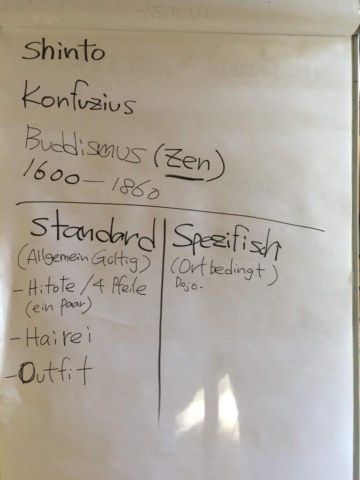 Shinto
Konfuzius
Buddismus (Zen)
1600 — 1860
Standard
(Allgemein Gültig)
- Hitote / 4 Pfeile
(ein paar)
- Hairei
- Outfit
Spezifisch
(Ortbedingt)
Dojo-